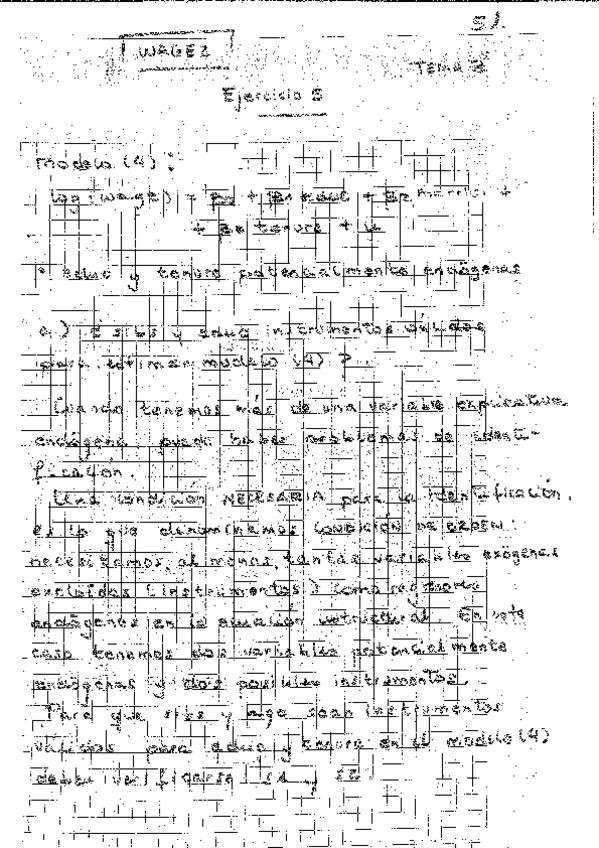 5).
WAGE2
TEMA 3
Ejercicio 5
modelo (4) :
log (wage) = β0 + β1 educ + β2 married +
+ β3 tenure + u
• educ y tenure potencialmente endógenas
a) ¿ sibs y instrumentos válidos
para estimar modelo (4) ?
Cuando tenemos más de una variable explicativa
endógena puede haber problemas de identi-
ficación.
Una condición NECESARIA para la identificación,
es la que denominamos CONDICIÓN DE ORDEN :
necesitamos, al menos, tantas variables exógenas
excluidas (instrumentos) como
endógenos en la ecuación estructural. En este
caso tenemos dos variables potencialmente
endógenas y dos posibles instrumentos.
Para que sibs y age sean instrumentos
válidos para educ y tenure en el modelo (4)
deben verificarse y